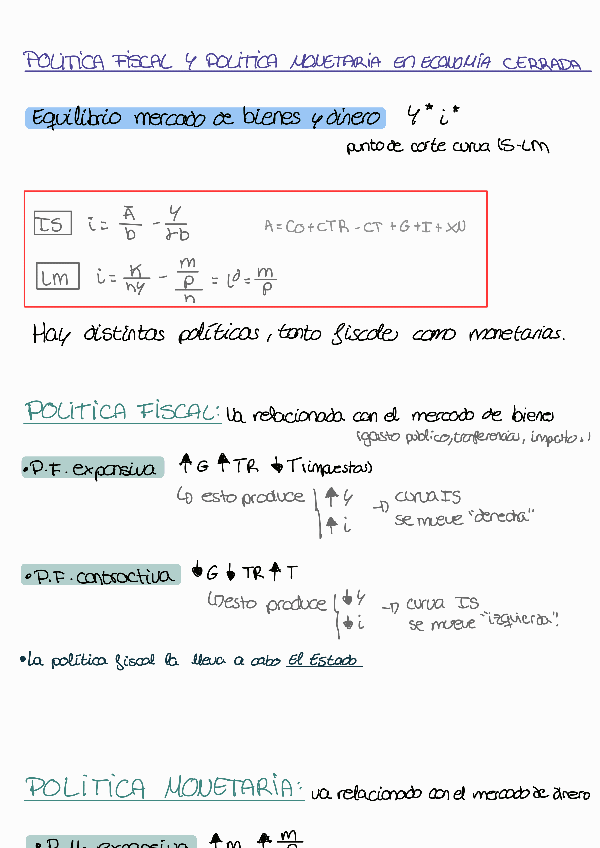 POLITICA FISCAL Y POLITICA MONETARIA EN ECONOMÍA CERRADA
Equilibrio mercado de bienes y dinero Y* i*
punto de corte curva IS-LM
IS i = Ā/b - Y/αb A = CO + CTR - CT + G + I + XN
LM i = K/hY - m/p/n = Ld = m/p
Hay distintas políticas, tanto fiscales como monetarias.
POLITICA FISCAL: Va relacionada con el mercado de bienes
(gasto publico, transferencias, impsto..)
• P.F. expansiva ↑G ↑TR ↓T (impuestos)
↳ esto produce | ↑Y → curva IS
| ↑i se mueve "derecha"
• P.F. contractiva ↓G ↓TR ↑T
↳ esto produce | ↓Y → curva IS
| ↓i se mueve "izquierda".
• La política fiscal la lleva a cabo El Estado
POLITICA MONETARIA: va relacionado con el mercado de dinero
• P.M. expansiva ↑M ↑m/p